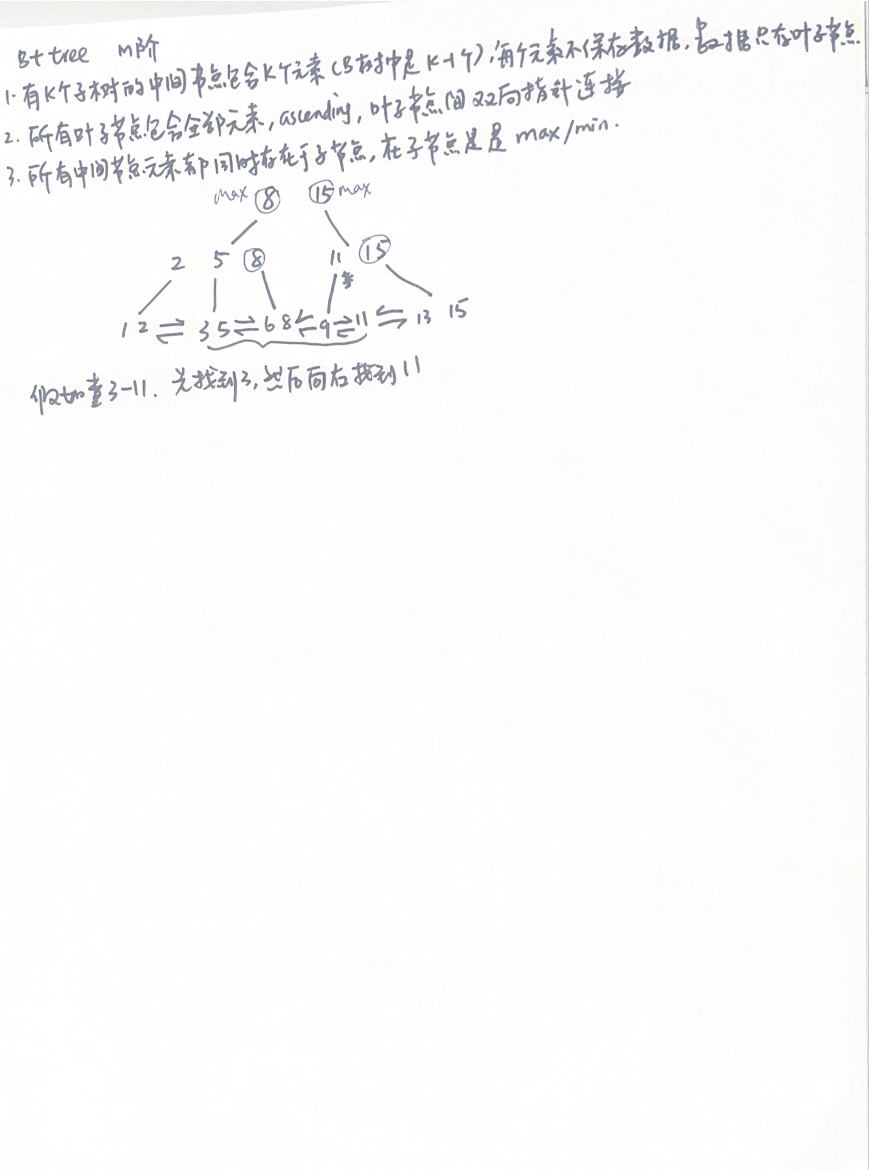 B+ tree m阶
1. 有K个子树的中间节点包含K个元素(B树中是K-1个),每个元素不保存数据,数据只存叶子节点
2. 所有叶子节点包含全部元素, ascending, 叶子节点间双向指针连接
3. 所有中间节点元素都同时存在于子节点, 在子节点是是 max/min.
max 8 15 max
2 5 8 11 15
1 2 ⇌ 3 5 ⇌ 6 8 ⇌ 9 ⇌ 11 ⇌ 13 15
假如查3-11. 先找到3, 然后向右找到11